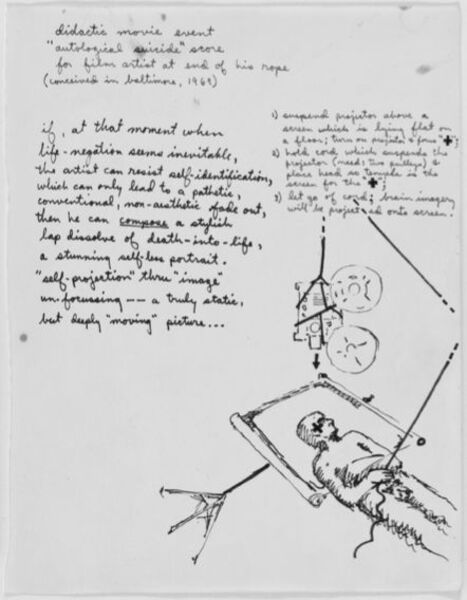 didactic movie event
"autological suicide" score
for film artist at end of his rope
(conceived in baltimore, 1969)
if, at that moment when
life-negation seems inevitable,
the artist can resist self-identification,
which can only lead to a pathetic,
conventional, non-aesthetic fade out,
then he can compose a stylish
lap dissolve of death-into-life,
a stunning self-less portrait.
"self-projection" thru "image"
un-focussing -- a truly static,
but deeply "moving" picture...
1) suspend projector above a
screen which is lying flat on
a floor; turn on projector & focus "✚";
2) hold cord which suspends the
projector (need: two pulleys) &
place head so temple is the
screen for the "✚";
3) let go of cord; brain imagery
will be project-ed onto screen.